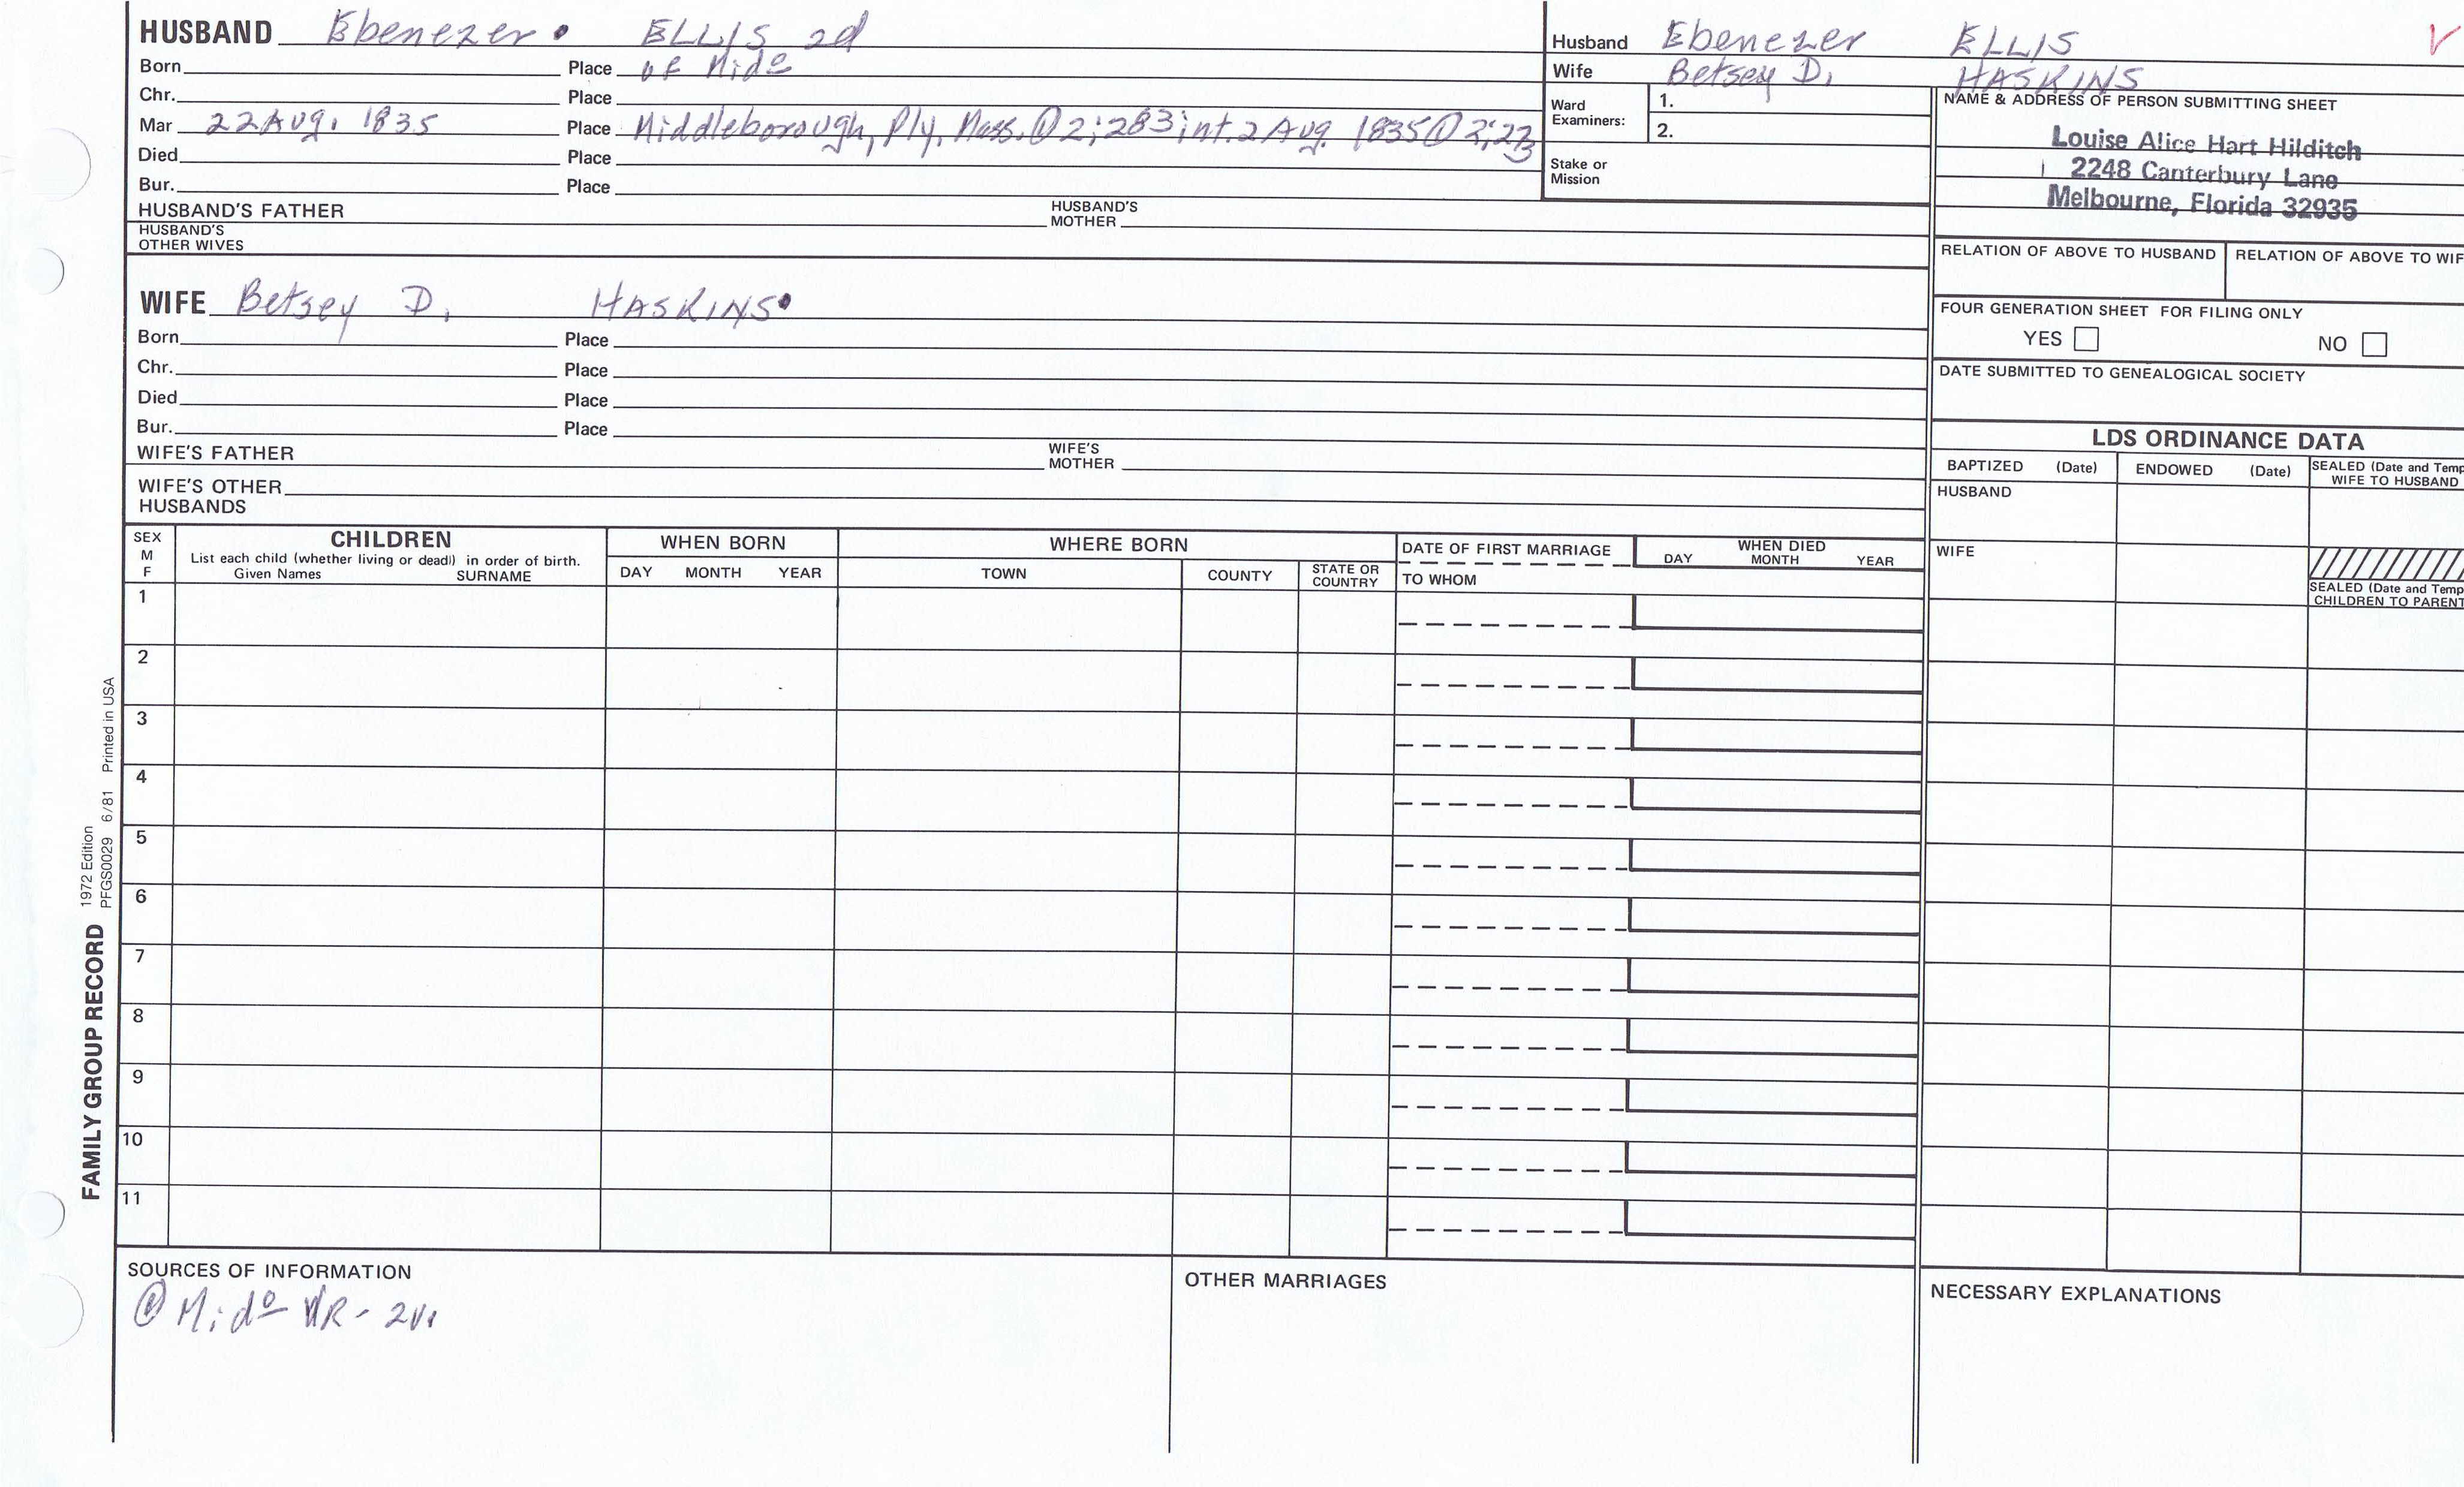 HUSBAND Ebenezer ELLIS 2d
Born Place of Mido
Chr. Place
Mar 22 Aug. 1835 Place Middleborough, Ply, Mass. @ 2:283 int. 2 Aug. 1835 @ 2:223
Died Place
Bur. Place
HUSBAND'S FATHER HUSBAND'S MOTHER
HUSBAND'S OTHER WIVES
Husband Ebenezer ELLIS
Wife Betsey D. HASKINS
Ward Examiners: 1.
2.
Stake or Mission
NAME & ADDRESS OF PERSON SUBMITTING SHEET
Louise Alice Hart Hilditch
2248 Canterbury Lane
Melbourne, Florida 32935
RELATION OF ABOVE TO HUSBAND RELATION OF ABOVE TO WIF
FOUR GENERATION SHEET FOR FILING ONLY
YES NO
DATE SUBMITTED TO GENEALOGICAL SOCIETY
WIFE Betsey D. HASKINS
Born Place
Chr. Place
Died Place
Bur. Place
WIFE'S FATHER WIFE'S MOTHER
WIFE'S OTHER HUSBANDS
LDS ORDINANCE DATA
BAPTIZED (Date) ENDOWED (Date) SEALED (Date and Temp
WIFE TO HUSBAND
HUSBAND
WIFE
SEALED (Date and Temp
CHILDREN TO PARENT
SEX M F
CHILDREN
List each child (whether living or dead) in order of birth.
Given Names SURNAME
WHEN BORN
DAY MONTH YEAR
WHERE BORN
TOWN COUNTY STATE OR COUNTRY
DATE OF FIRST MARRIAGE
TO WHOM
WHEN DIED
DAY MONTH YEAR
1
2
3
4
5
6
7
8
9
10
11
FAMILY GROUP RECORD
1972 Edition
PFGS0029 6/81 Printed in USA
SOURCES OF INFORMATION
@ Mido VR - 2v.
OTHER MARRIAGES
NECESSARY EXPLANATIONS